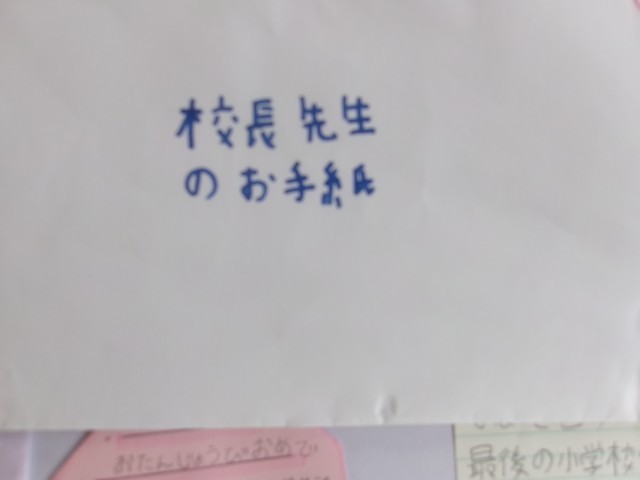 校長先生
のお手紙
おたんじょうびおめで
最後の小学校